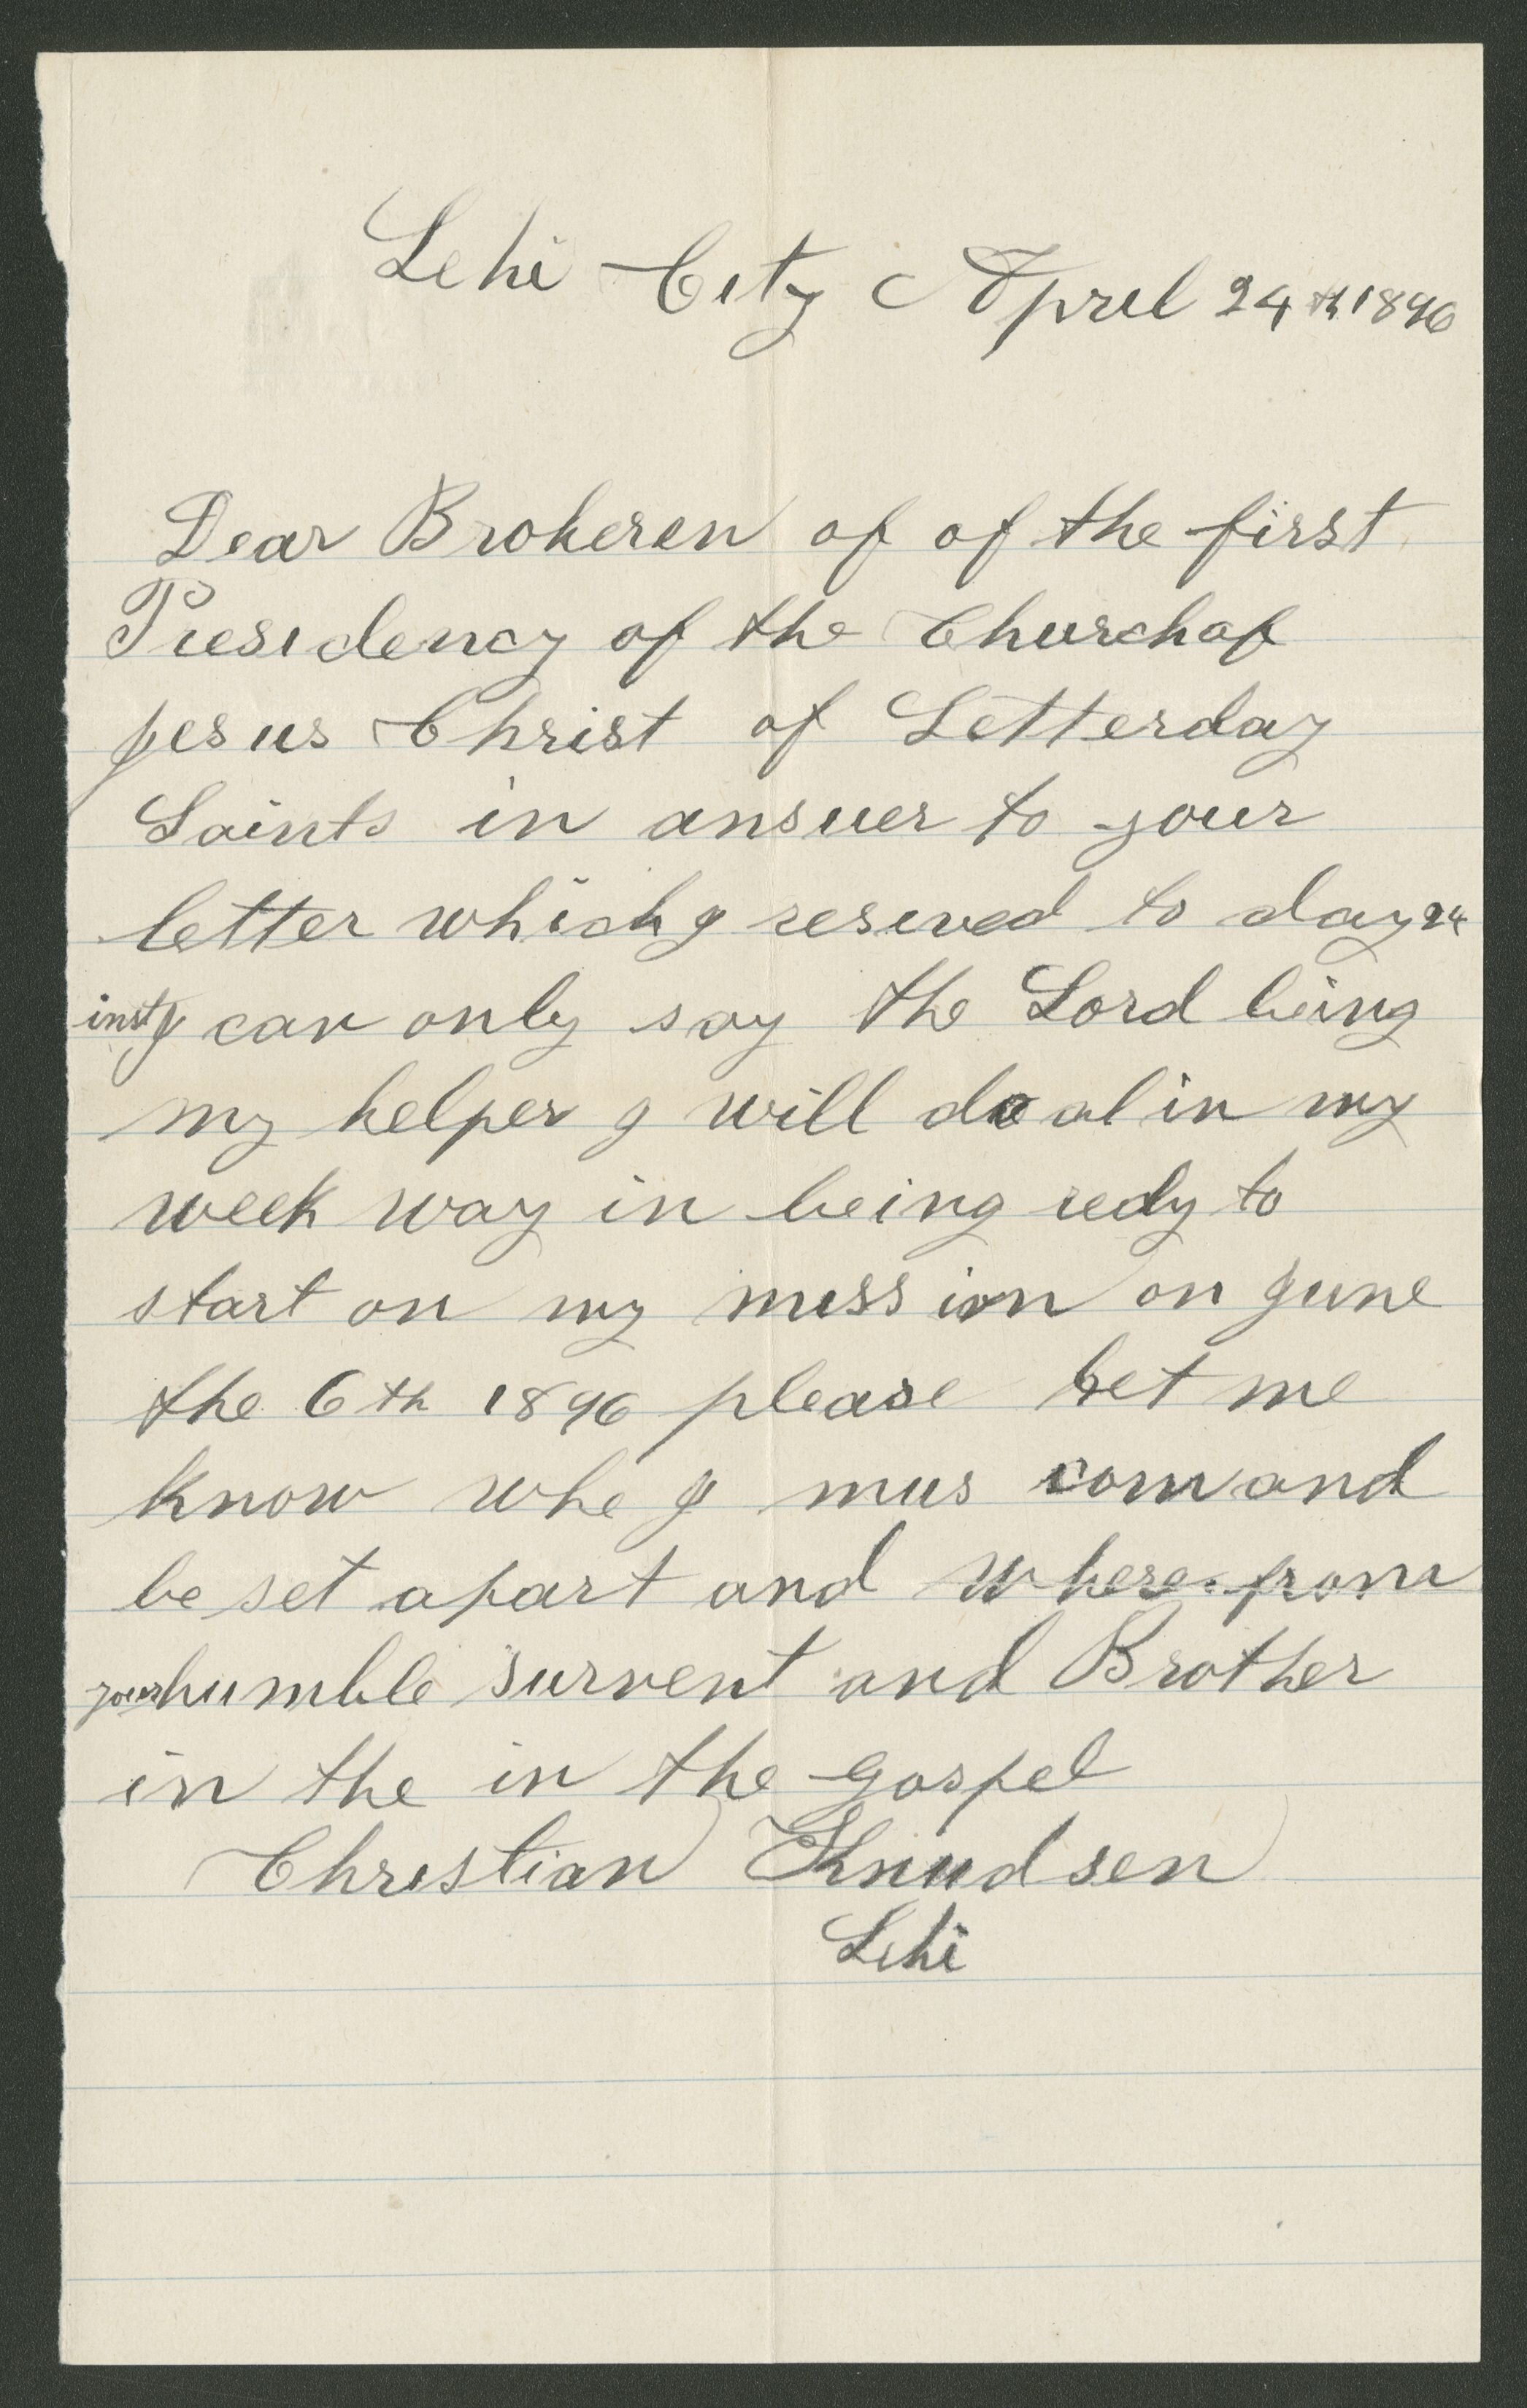 Lehi City April 24th 1896
Dear Brokeren of of the first
Presidency of the Church of
Jesus Christ of Letterday
Saints in ansuer to your
letter which I reseved to day 24
inst I can only say the Lord being
my helper I will do al in my
week way in being redy to
start on my mission on June
the 6th 1896 please let me
know whe I mus com and
be set apart and where. from
your humble survent and Brother
in the in the gospel
Christian Knudsen
Lehi